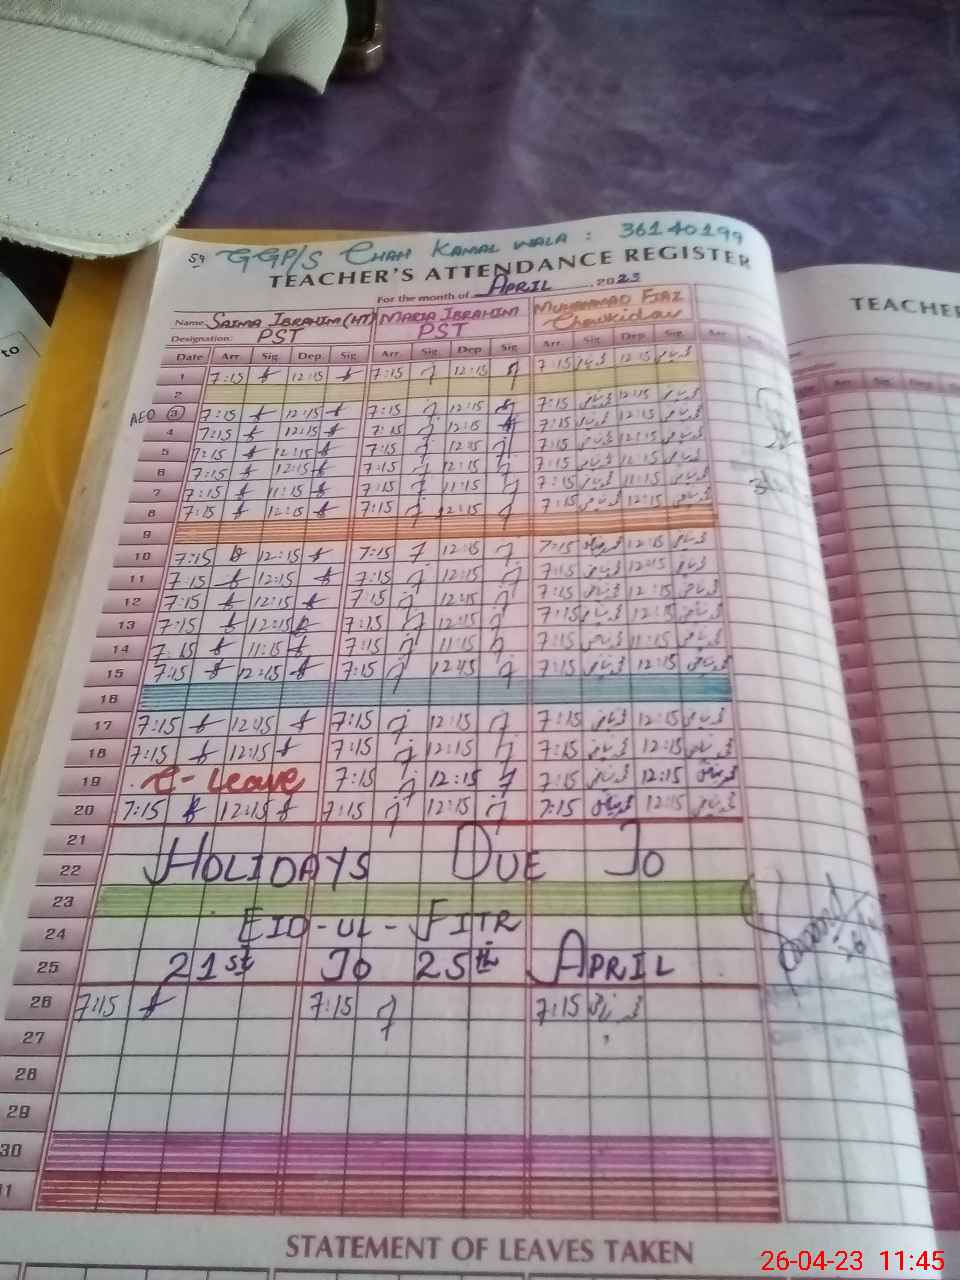 59 GGP/S CHAH KAMAL WALA : 36140199
TEACHER'S ATTENDANCE REGISTER
For the month of APRIL 2023
Name SAIMA IBRAHIM (HT) MARIA IBRAHIM MUHAMMAD FIAZ
Designation: PST PST Chowkidar
Date Arr. Sig. Dep. Sig. Arr. Sig. Dep. Sig. Arr. Sig. Dep. Sig. Arr.
1 7:15 12:15 7:15 12:15 7:15 12:15
2
AEO 3 7:15 12:15 7:15 12:15 7:15 12:15
4 7:15 12:15 7:15 12:15 7:15 12:15
5 7:15 12:15 7:15 12:15 7:15 12:15
6 7:15 12:15 7:15 12:15 7:15 12:15
7 7:15 11:15 7:15 11:15 7:15 11:15
8 7:15 12:15 7:15 12:15 7:15 12:15
9
10 7:15 12:15 7:15 12:15 7:15 12:15
11 7:15 12:15 7:15 12:15 7:15 12:15
12 7:15 12:15 7:15 12:15 7:15 12:15
13 7:15 12:15 7:15 12:15 7:15 12:15
14 7:15 11:15 7:15 11:15 7:15 11:15
15 7:15 12:15 7:15 12:15 7:15 12:15
16
17 7:15 12:15 7:15 12:15 7:15 12:15
18 7:15 12:15 7:15 12:15 7:15 12:15
19 C-Leave 7:15 12:15 7:15 12:15
20 7:15 12:15 7:15 12:15 7:15 12:15
21
22 HOLIDAYS DUE TO
23
24 EID-UL-FITR
25 21st TO 25th APRIL
26 7:15 7:15 7:15
27
28
29
30
STATEMENT OF LEAVES TAKEN
TEACHER
to
26-04-23 11:45